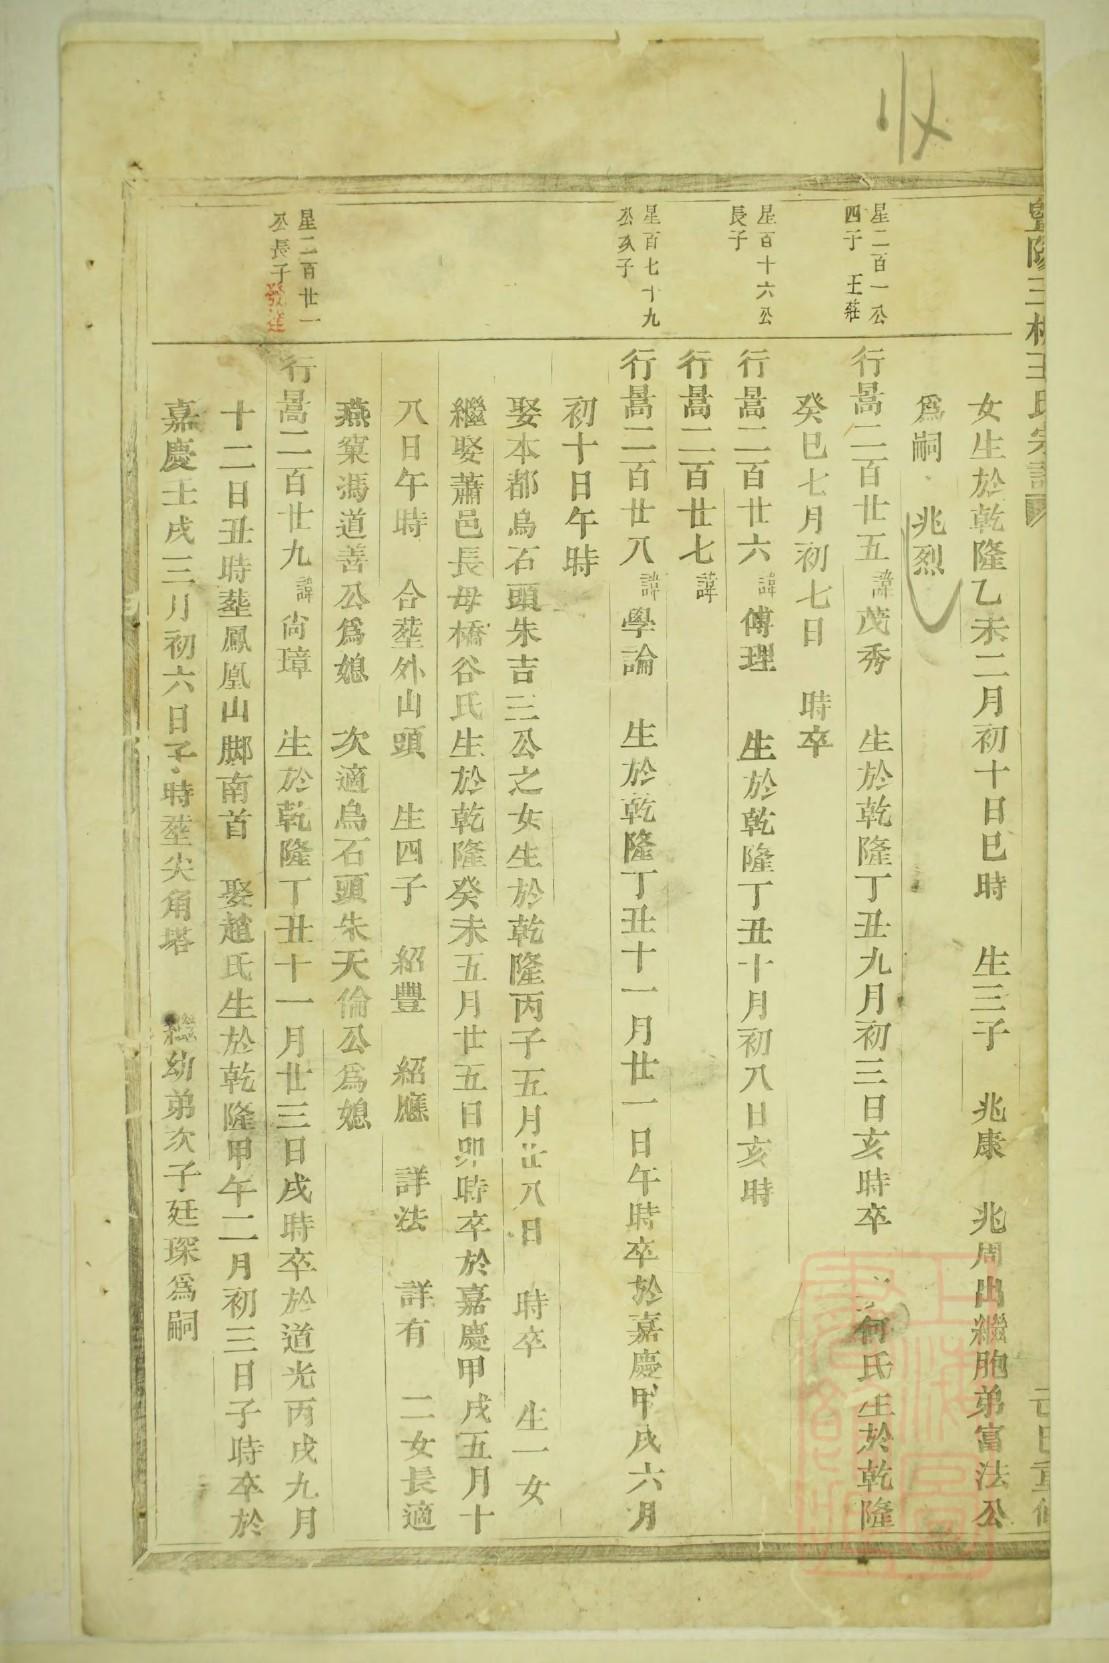 暨陽三相王氏宗譜
己巳重修
收
女生於乾隆乙未二月初十日巳時　生三子　兆康　兆周出繼胞弟富法公
爲嗣　兆烈
星二百一公
四子　王莊
行暠二百廿五諱茂秀　生於乾隆丁丑九月初三日亥時卒　何氏生於乾隆
癸巳七月初七日　時卒
星百十六公
長子
行暠二百廿六諱傅理　生於乾隆丁丑十月初八日亥時
行暠二百廿七諱
星百七十九
公次子
行暠二百廿八諱學論　生於乾隆丁丑十一月廿一日午時卒於嘉慶甲戌六月
初十日午時
娶本都烏石頭朱吉三公之女生於乾隆丙子五月廿八日　時卒　生一女
繼娶蕭邑長母橋谷氏生於乾隆癸未五月廿五日卯時卒於嘉慶甲戌五月十
八日午時　合塟外山頭　生四子　紹豐　紹應　詳法　詳有　二女長適
燕窠馮道善公爲媳　次適烏石頭朱天倫公爲媳
星二百廿一
公長子
發達
行暠二百廿九諱尚璋　生於乾隆丁丑十一月廿三日戌時卒於道光丙戌九月
十二日丑時塟鳳凰山脚南首　娶趙氏生於乾隆甲午二月初三日子時卒於
嘉慶壬戌三月初六日子時塟尖角塔　繼幼弟次子廷琛爲嗣